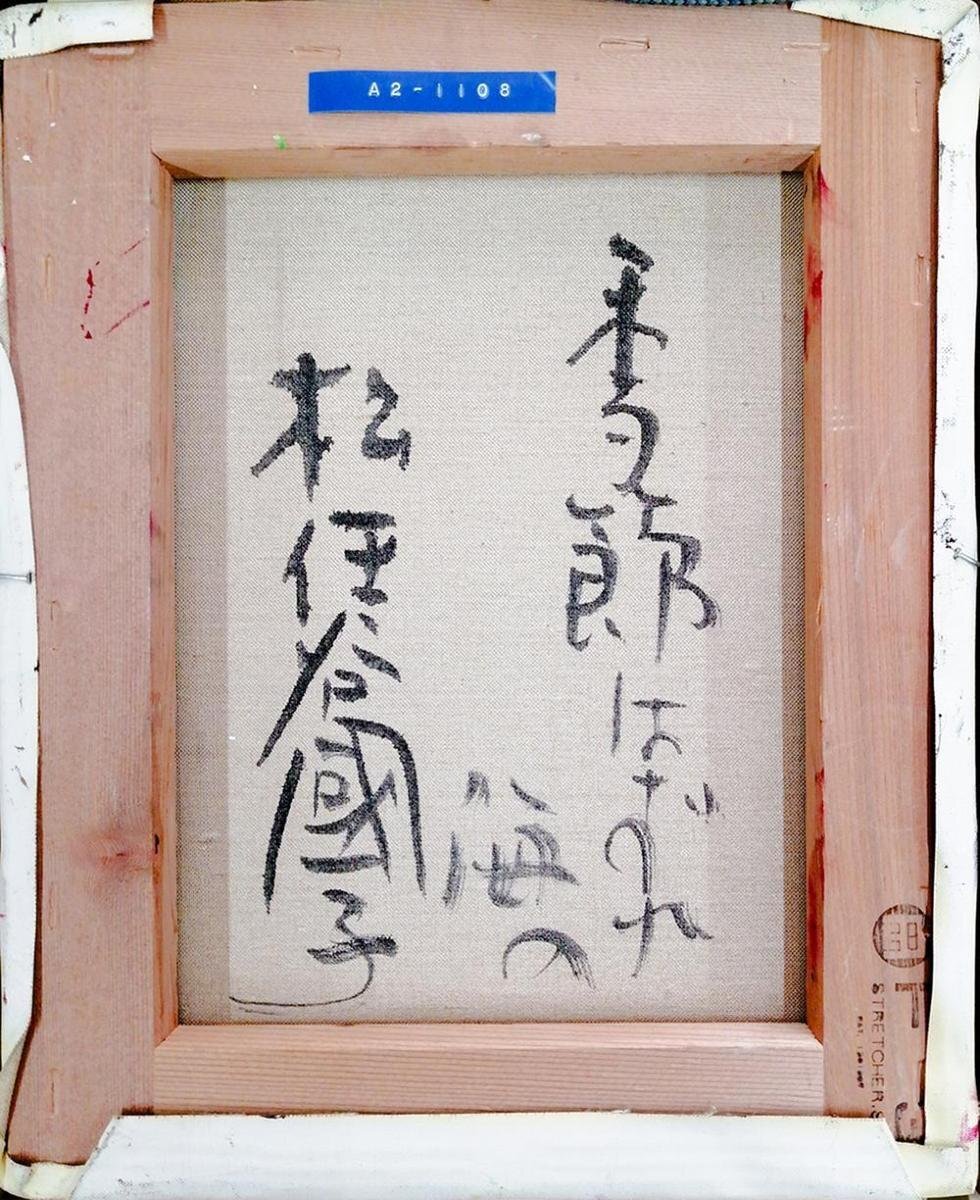 A2-1108
季節はずれ
海の
松任谷國子
STRETCHER.S